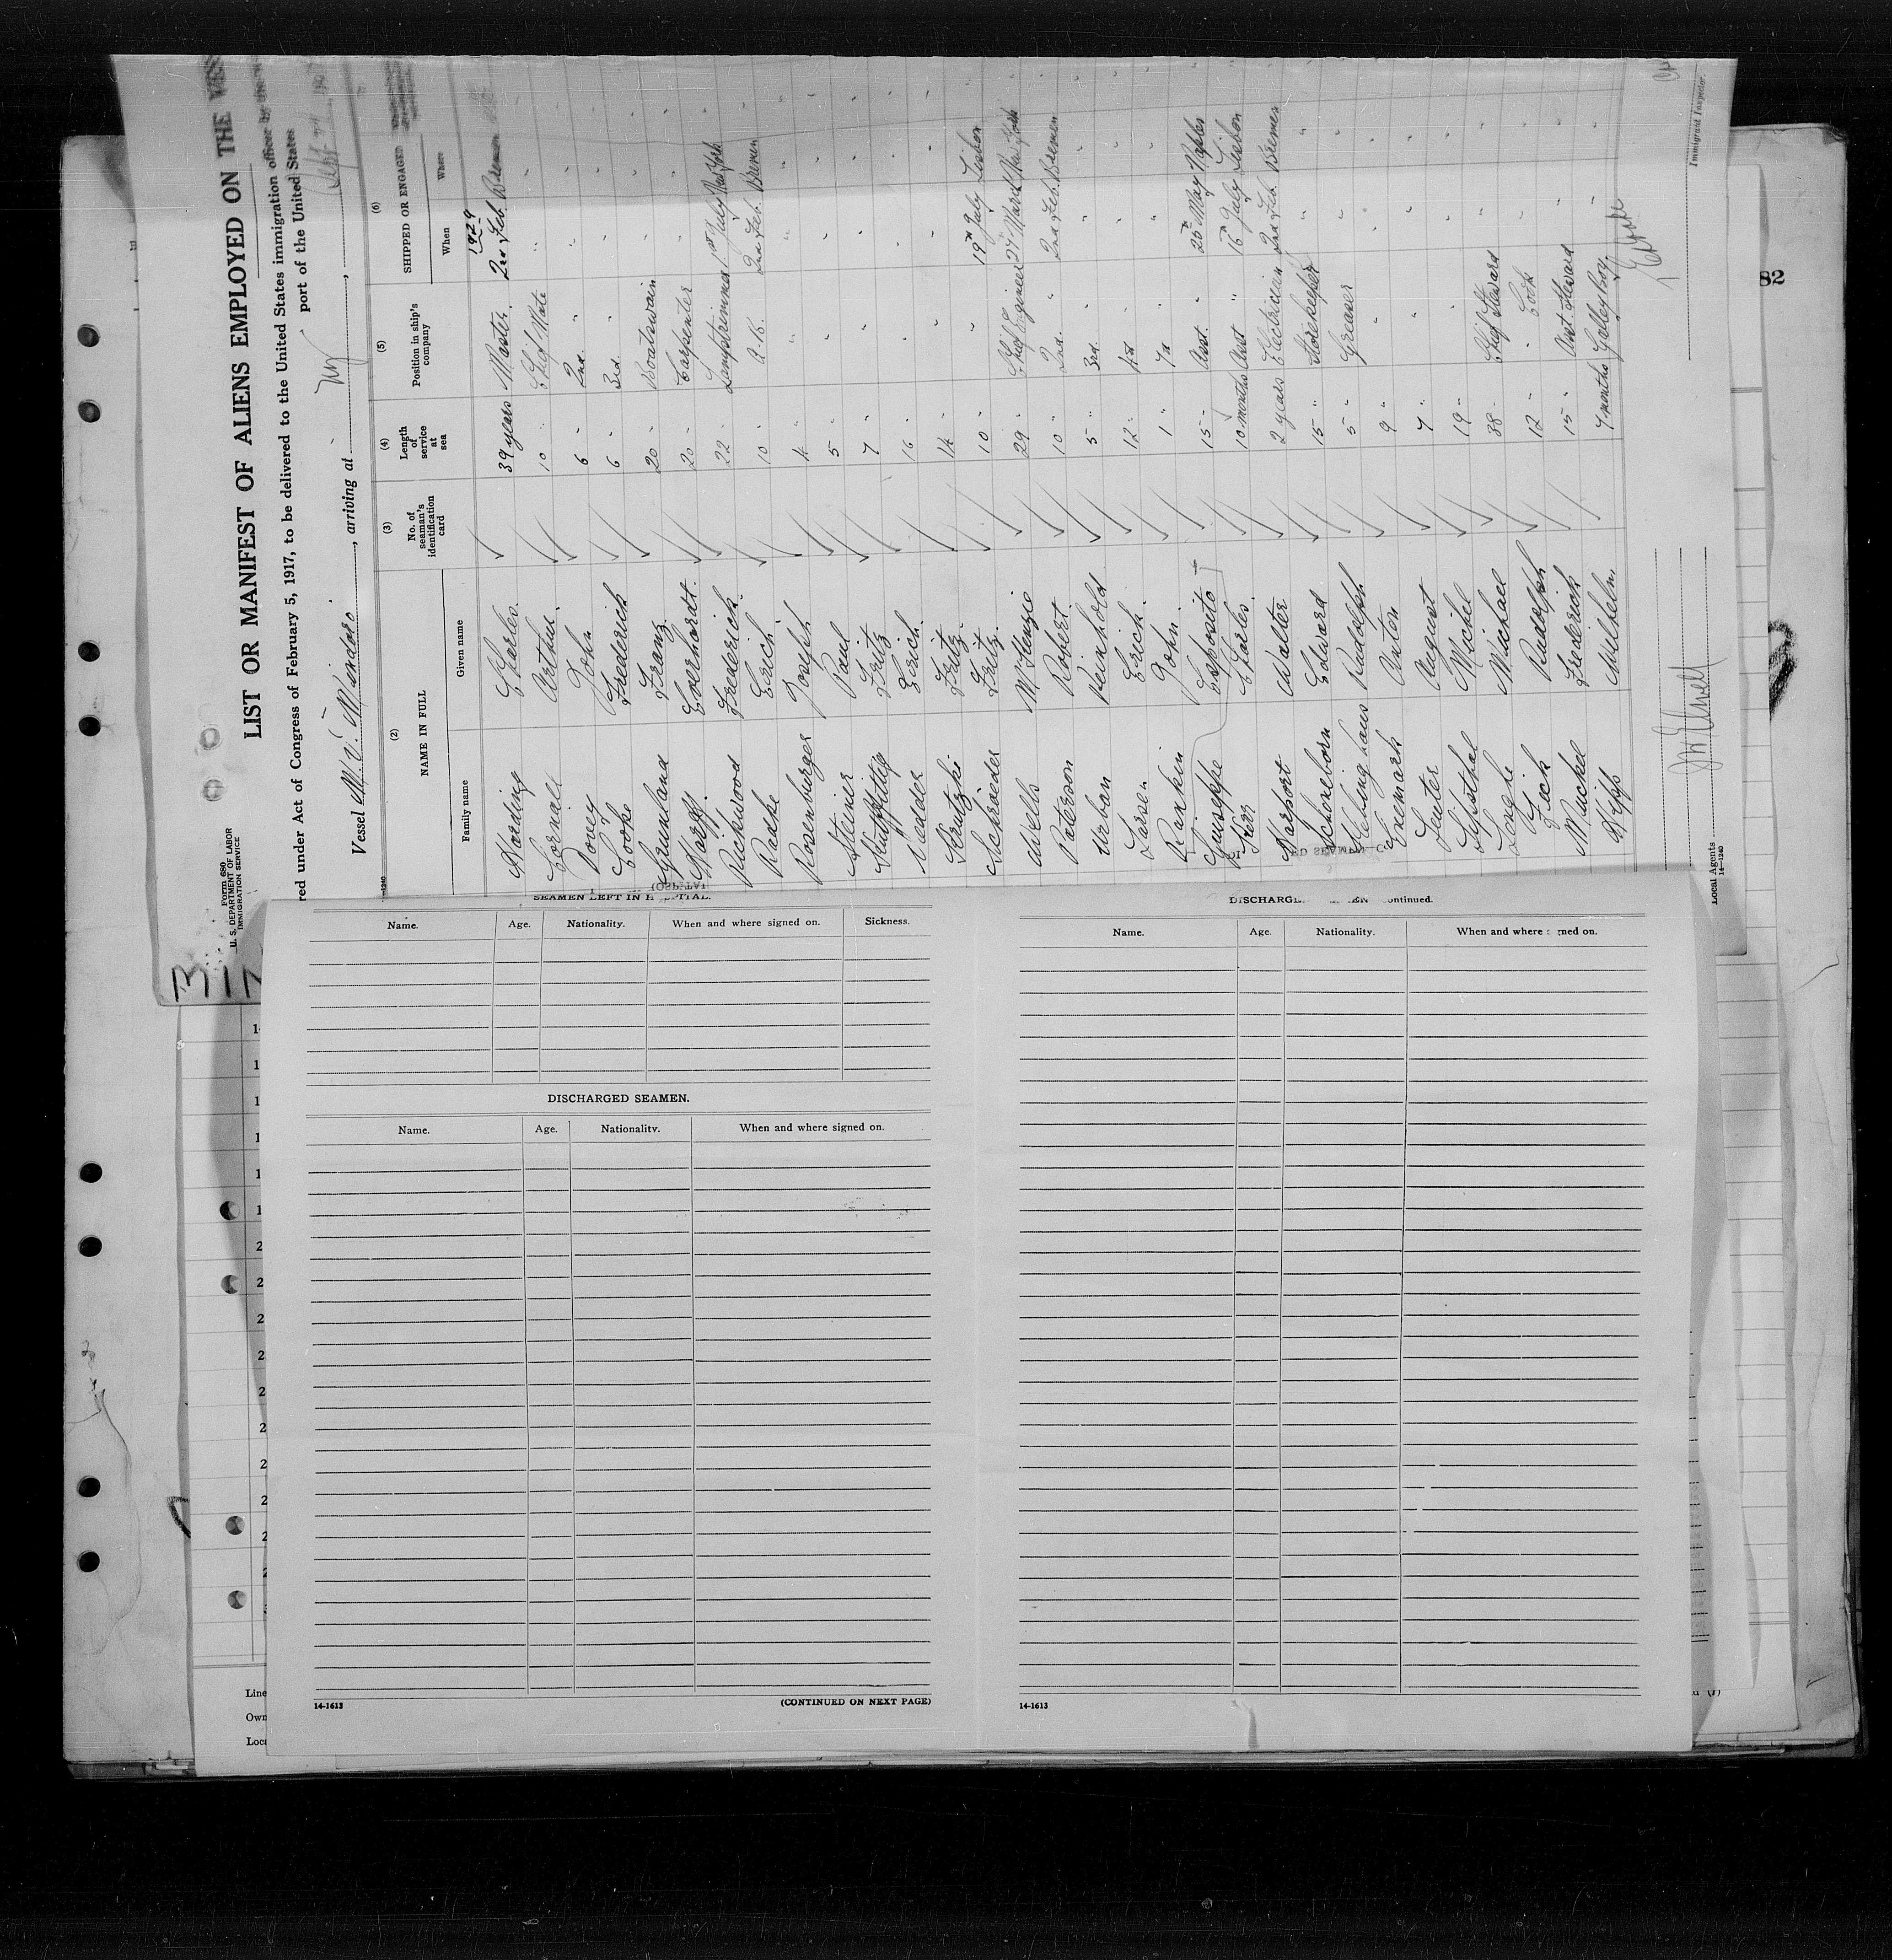 Form 680
U. S. DEPARTMENT OF LABOR
IMMIGRATION SERVICE
LIST OR MANIFEST OF ALIENS EMPLOYED ON THE
red under Act of Congress of February 5, 1917, to be delivered to the United States immigration officer by the
port of the United States
Vessel M.V. "Mindoro", arriving at NY
(2) (3) (4) (5) (6)
NAME IN FULL No. of seaman's identification card Length of service at sea Position in ship's company SHIPPED OR ENGAGED
Family name Given name When Where
1929
Harding Charles 39 years Master 2nd Feb. Bremen
Arthur 10 " Chief Mate " "
Dovey John 6 " 2nd. " " "
Cooke Frederick 6 " 3rd. " " "
Grunland Franz 20 " Boatswain " "
Everhardt. 20 " Carpenter " "
Pickwood Frederick 22 " Lamptrimmer 1st July New York
Radke Erich 10 " A.B. 2nd Feb. Bremen
Rosenburger Joseph 4 " " " "
Steiner Paul 5 " " " "
Fritz 7 " " " "
Wedde Erich 16 " " " "
Krutzki Fritz 14 " " " "
Schroeder Fritz 10 " " 19th July Lisbon
Wells McKenzie 29 " Chief Engineer 27th March New York
Paterson Robert 10 " 2nd. " 2nd Feb. Bremen
Urban Reinhold 5 " 3rd. " " "
Larsen Erich 12 " 4th " " "
Rankin John 1 " 7th " " "
Guiseppe Esposito 15 " Asst. " 20th May Naples
Charles 10 months Asst " 16th July Lisbon
Warport Walter 2 years Electrician 2nd Feb. Bremen
Schoneborn Edward 15 " Storekeeper " "
Rudolph 5 " Greaser " "
Enemark Anton 9 " " " "
August 7 " " " "
Lipsthal Michel 19 " " " "
Michael 38 " Chief Steward " "
Fick Rudolph 12 " " Cook " "
Muckel Frederick 15 " Asst. Steward " "
Hepp Wilhelm. 7 months Galley boy " "
Local Agents
14—1240
Immigrant Inspector.
82
SEAMEN LEFT IN HOSPITAL.
Name. Age. Nationality. When and where signed on. Sickness.
DISCHARGED SEAMEN.
Name. Age. Nationality. When and where signed on.
14-1613 (CONTINUED ON NEXT PAGE)
DISCHARGED SEAMEN—Continued.
Name. Age. Nationality. When and where signed on.
14-1613
Line
Own
Loca